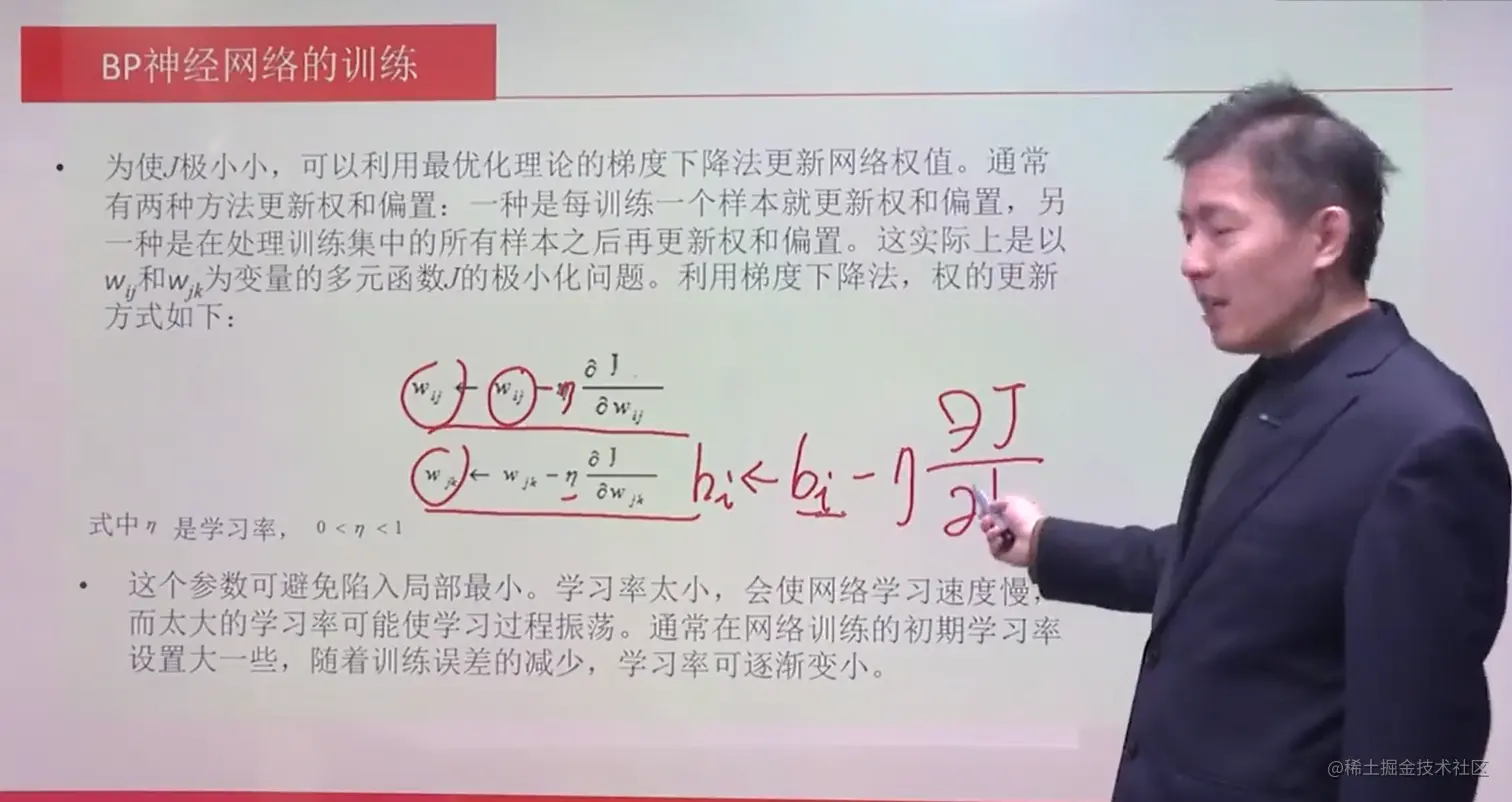 BP神经网络的训练
• 为使J极小小，可以利用最优化理论的梯度下降法更新网络权值。通常
有两种方法更新权和偏置：一种是每训练一个样本就更新权和偏置，另
一种是在处理训练集中的所有样本之后再更新权和偏置。这实际上是以
w_ij和w_jk为变量的多元函数J的极小化问题。利用梯度下降法，权的更新
方式如下：
w_ij ← w_ij - η ∂J/∂w_ij
w_jk ← w_jk - η ∂J/∂w_jk
b_i ← b_i - η ∂J/∂
式中 η 是学习率， 0 < η < 1
• 这个参数可避免陷入局部最小。学习率太小，会使网络学习速度慢，
而太大的学习率可能使学习过程振荡。通常在网络训练的初期学习率
设置大一些，随着训练误差的减少，学习率可逐渐变小。
@稀土掘金技术社区